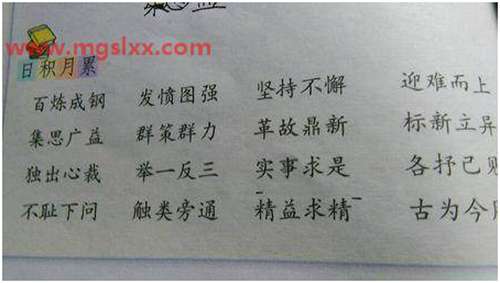 集思益
www.mgslxx.com
日积月累
百炼成钢 发愤图强 坚持不懈 迎难而上
集思广益 群策群力 革故鼎新 标新立异
独出心裁 举一反三 实事求是 各抒己
不耻下问 触类旁通 精益求精 古为今